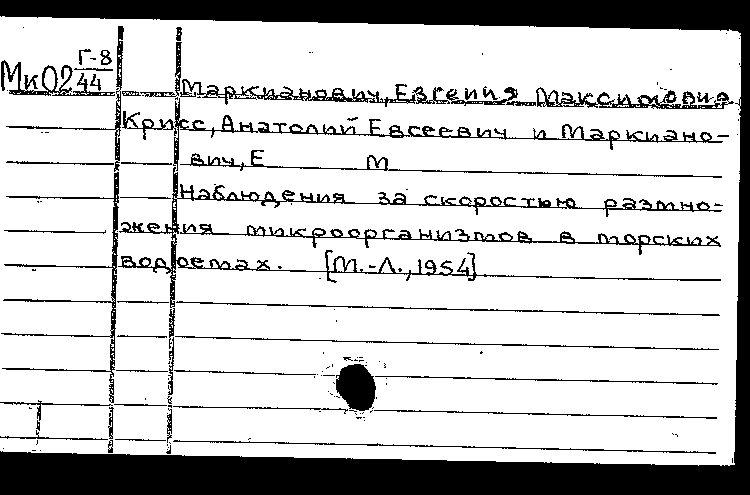 МкО2 Г-8/44
Маркианович, Евгения Максимовна
Крисс, Анатолий Евсеевич и Маркиано-
вич, Е М
Наблюдения за скоростью размно-
жения микроорганизмов в морских
водоемах. [М.-Л., 1954]